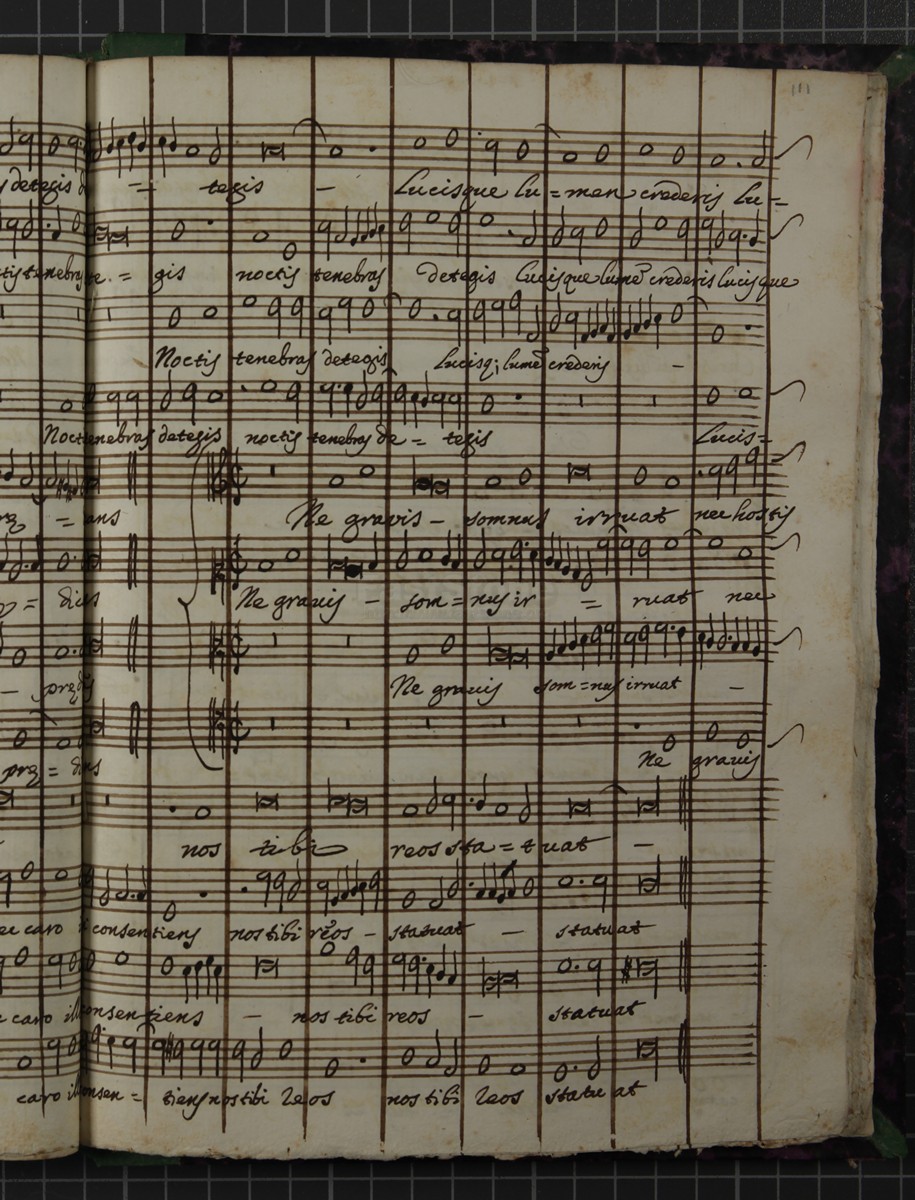 111
detegis de = tegis - Lucisque lu = men crederis lu =
tenebras te. = gis noctis tenebras detegis Lucisque lumē crederis lucisque
Noctis tenebras detegis Lucisq; lumē crederis -
Noc tenebras detegis noctis tenebras de = tegis Lucis =
= ans Ne gravis - somnus irruat nec hostis
= dicas Ne gravis - som = nus ir = ruat nec
- prędi Ne gravis som = nus irruat -
prę = dicas Ne gravis
nos tibi reos sta = tuat -
caro consentiens nos tibi reos - statuat - statuat
caro illi consentiens - nos tibi reos - statuat
caro illi consen = tiens nos tibi reos nos tibi reos statuat